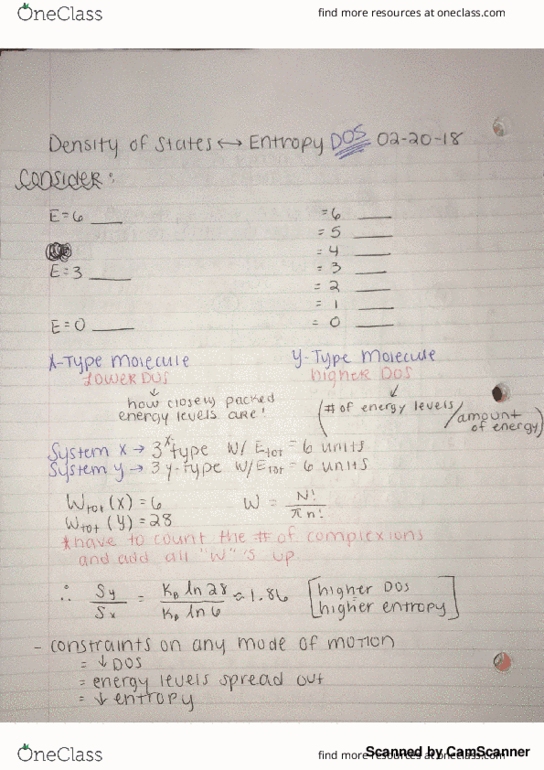 OneClass
find more resources at oneclass.com
Density of States ↔ Entropy DOS 02-20-18
CONSIDER:
E=6 ___ =6 ___
=5 ___
=4 ___
E=3 ___ =3 ___
=2 ___
=1 ___
E=0 ___ =0 ___
X-Type Molecule Y-Type Molecule
Lower DOS higher DOS
↓ how closely packed energy levels are! ↓ (# of energy levels / amount of energy)
System X → 3 x type w/ Etot = 6 units
System y → 3 y-type w/ Etot = 6 units
Wtot (X) = 6 W = N! / πn!
Wtot (Y) = 28
*have to count the # of complexions
and add all "W"'s up.
∴ Sy / Sx = KB ln 28 / KB ln 6 = 1.86 [higher DOS higher entropy]
- constraints on any mode of motion
= ↓ DOS
= energy levels spread out
= ↓ entropy
OneClass
find more resources at oneclass.com
Scanned by CamScanner